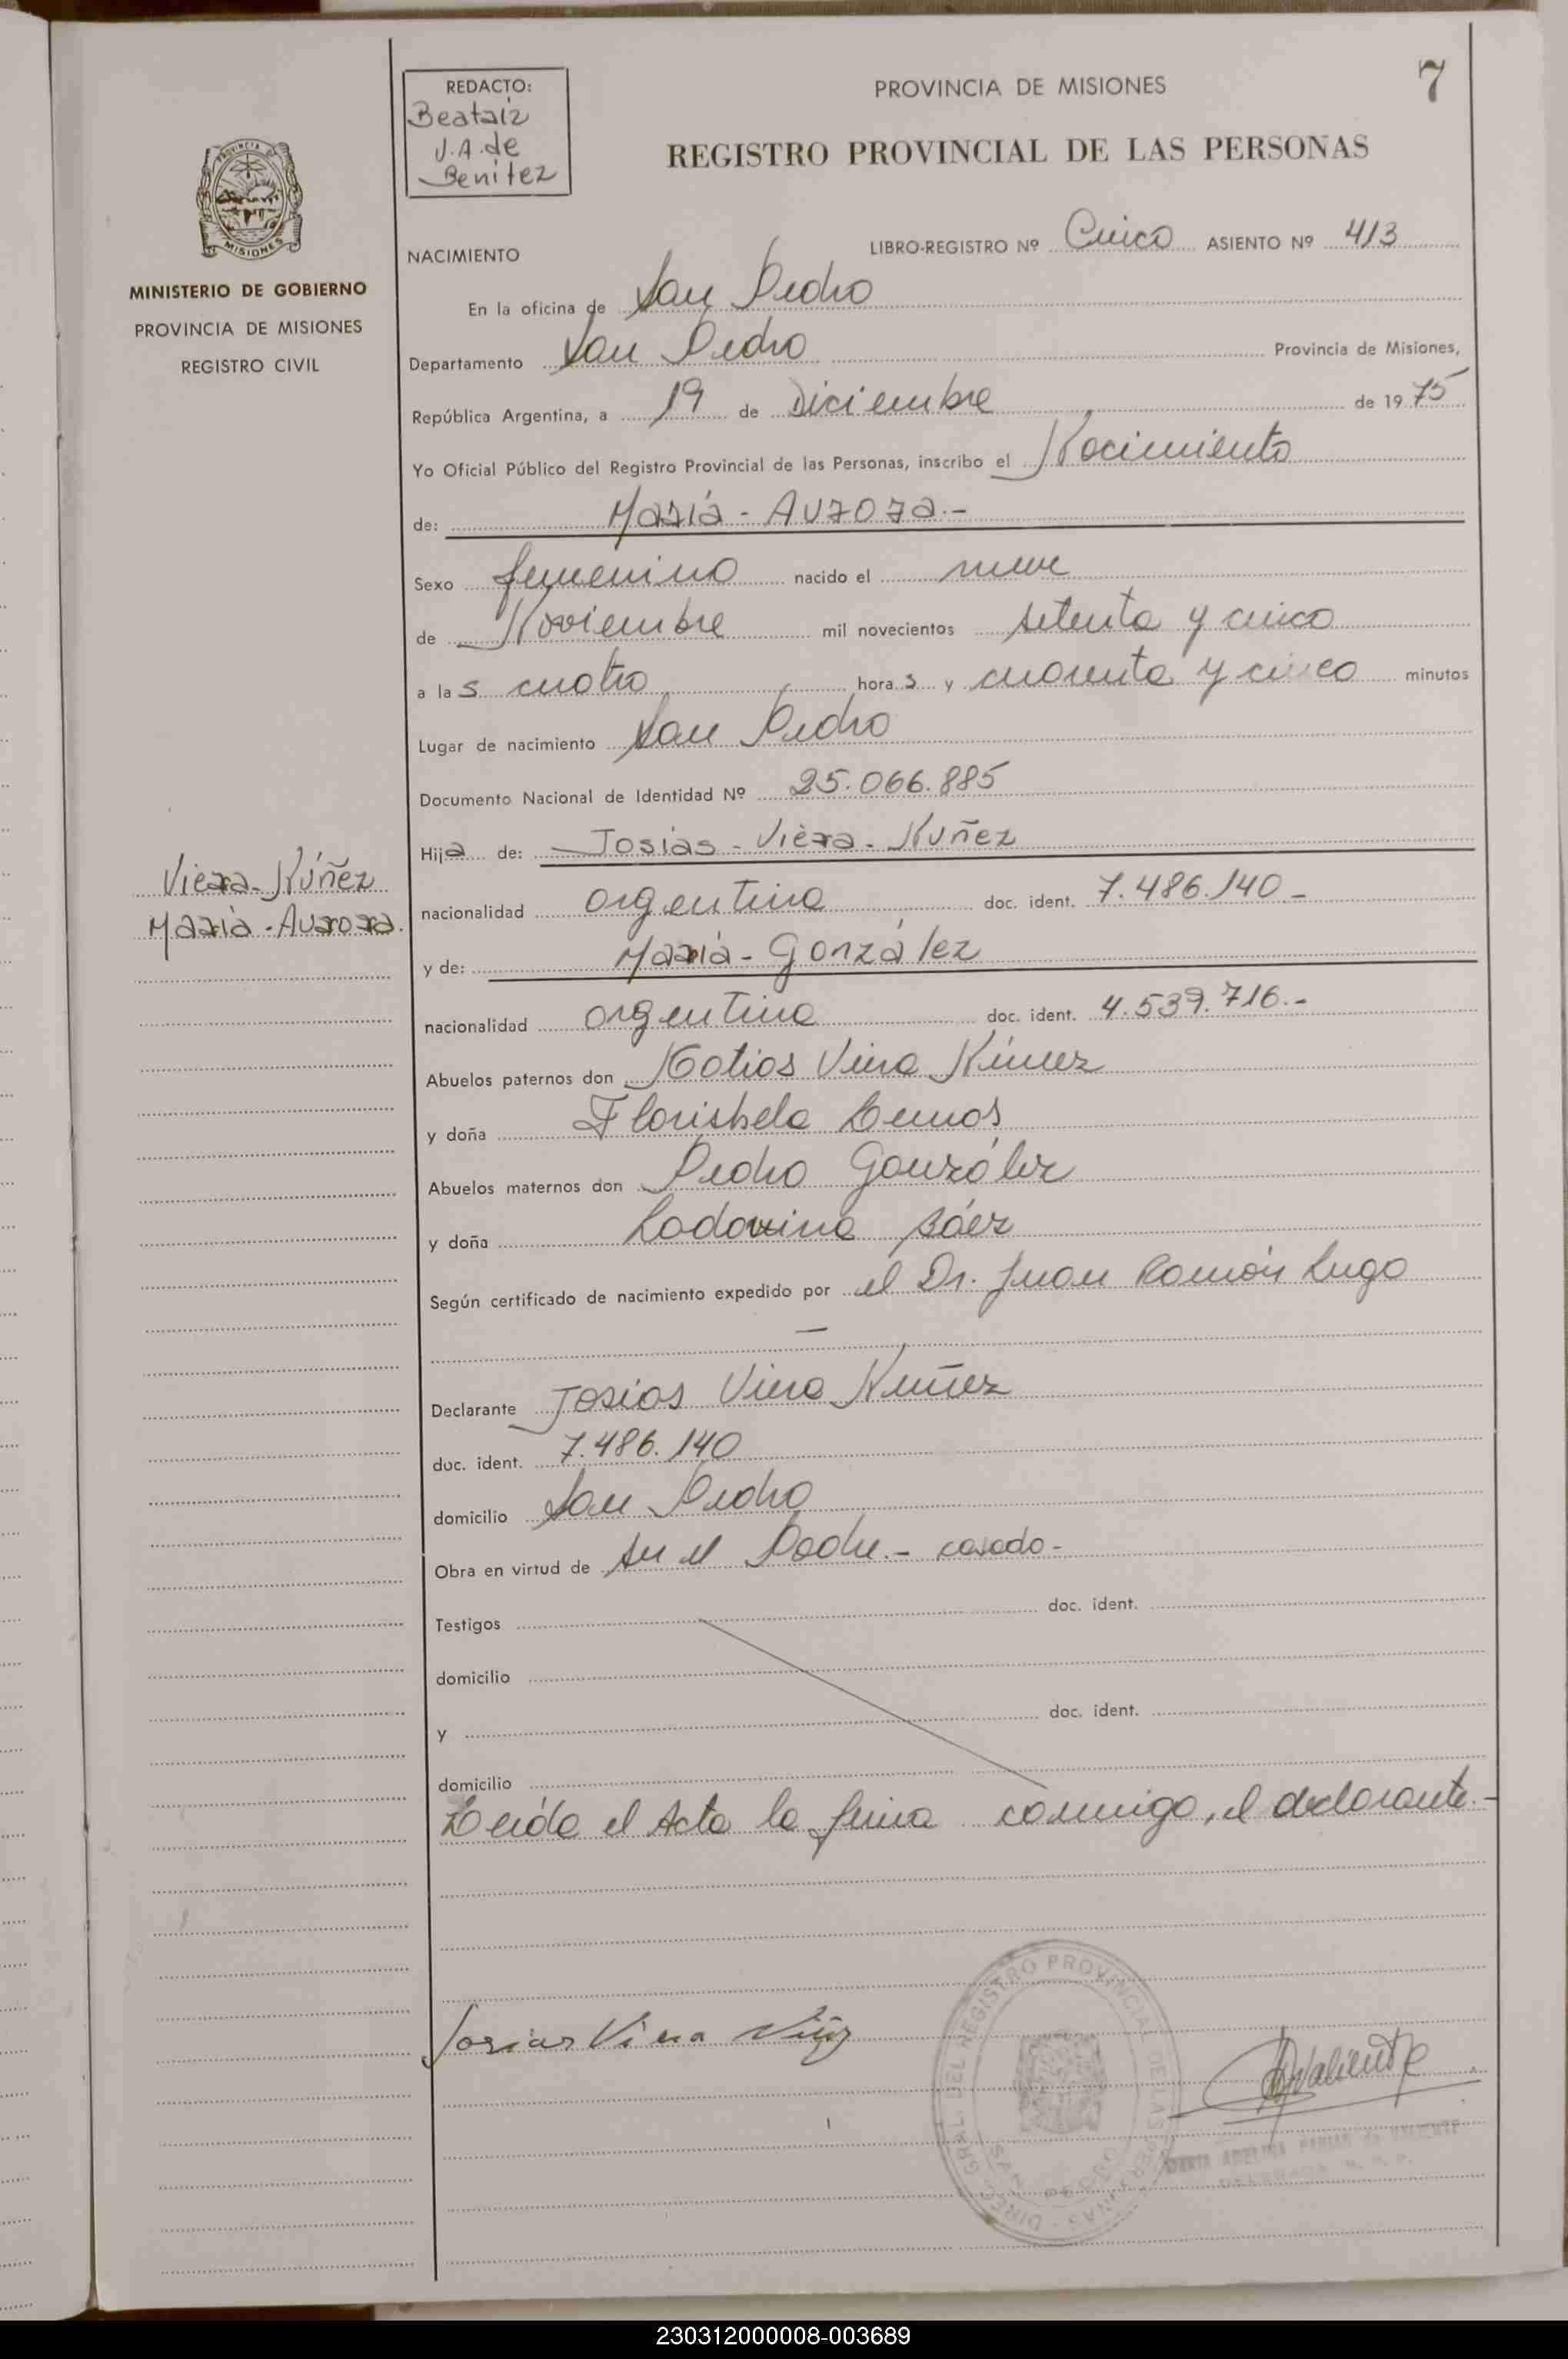 7
REDACTO:
Beatriz
V.A. de
Benitez
PROVINCIA DE MISIONES
REGISTRO PROVINCIAL DE LAS PERSONAS
PROVINCIA DE
MISIONES
MINISTERIO DE GOBIERNO
PROVINCIA DE MISIONES
REGISTRO CIVIL
Viera - Núñez
María - Aurora.
NACIMIENTO
LIBRO-REGISTRO Nº Cinco ASIENTO Nº 413
En la oficina de San Pedro
Departamento San Pedro Provincia de Misiones,
República Argentina, a 19 de Diciembre de 1975
Yo Oficial Público del Registro Provincial de las Personas, inscribo el Nacimiento
de: María - Aurora.-
Sexo femenino nacido el nueve
de Noviembre mil novecientos setenta y cinco
a las cuatro horas y cuarenta y cinco minutos
Lugar de nacimiento San Pedro
Documento Nacional de Identidad Nº 25.066.885
Hija de: Josías - Viera - Núñez
nacionalidad argentina doc. ident. 7.486.140 -
y de: María - González
nacionalidad argentina doc. ident. 4.539.716.-
Abuelos paternos don Matias Viera Núnez
y doña Florisbela Lemos
Abuelos maternos don Pedro González
y doña Lodovina Báez
Según certificado de nacimiento expedido por el Dr. Juan Ramón Lugo
—
Declarante Josias Viera Nuñez
doc. ident. 7.486.140
domicilio San Pedro
Obra en virtud de ser el Padre.- casado-
Testigos doc. ident.
domicilio
y doc. ident.
domicilio
Leída el Acta la firma conmigo, el declarante.-
Josias Viera Nuñz
Valiente
DIREC. GRAL. DEL REGISTRO PROVINCIAL DE LAS PERSONAS
ADELINA FARIAS de VALIENTE
230312000008-003689